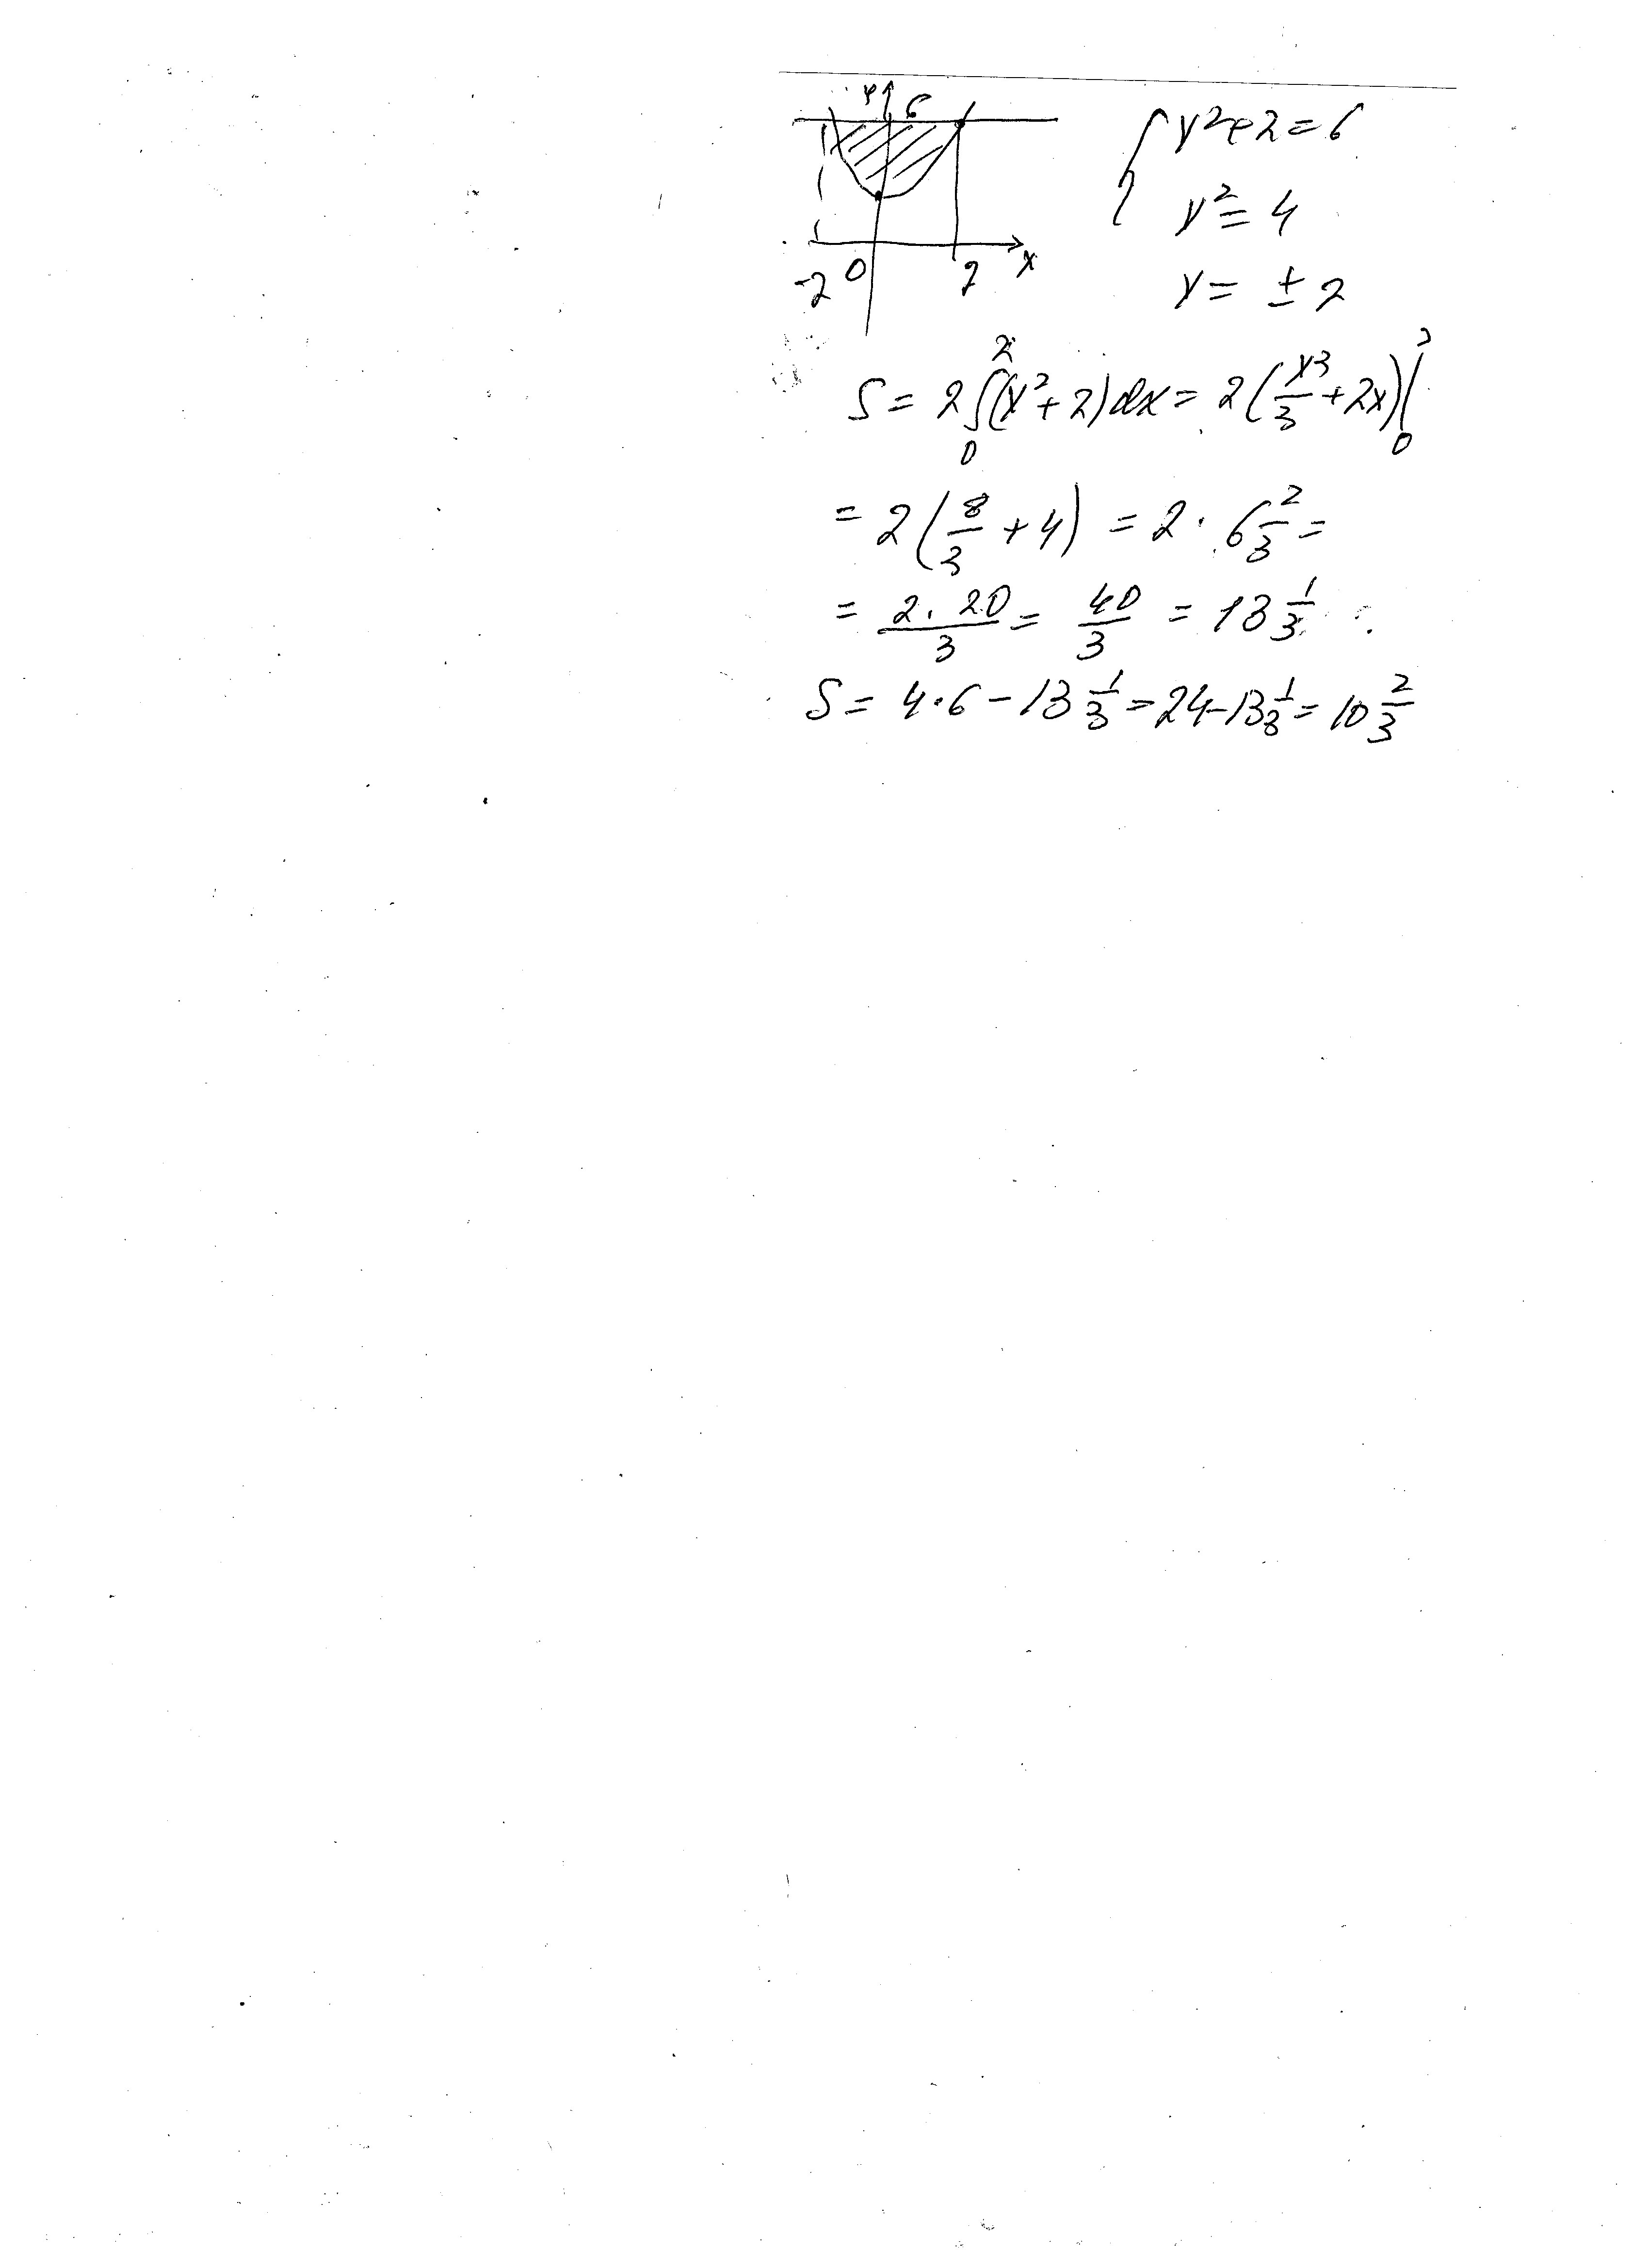 y 6
-2 0 2 x
{ x²+2=6
x²=4
x= ±2
S = 2∫₀²(x²+2)dx = 2(x³/3+2x)|₀²
= 2(8/3+4) = 2·6 2/3 =
= 2·20/3 = 40/3 = 13 1/3
S = 4·6 - 13 1/3 = 24-13 1/3 = 10 2/3